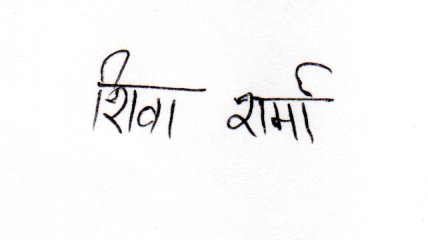 शिवा शर्मा